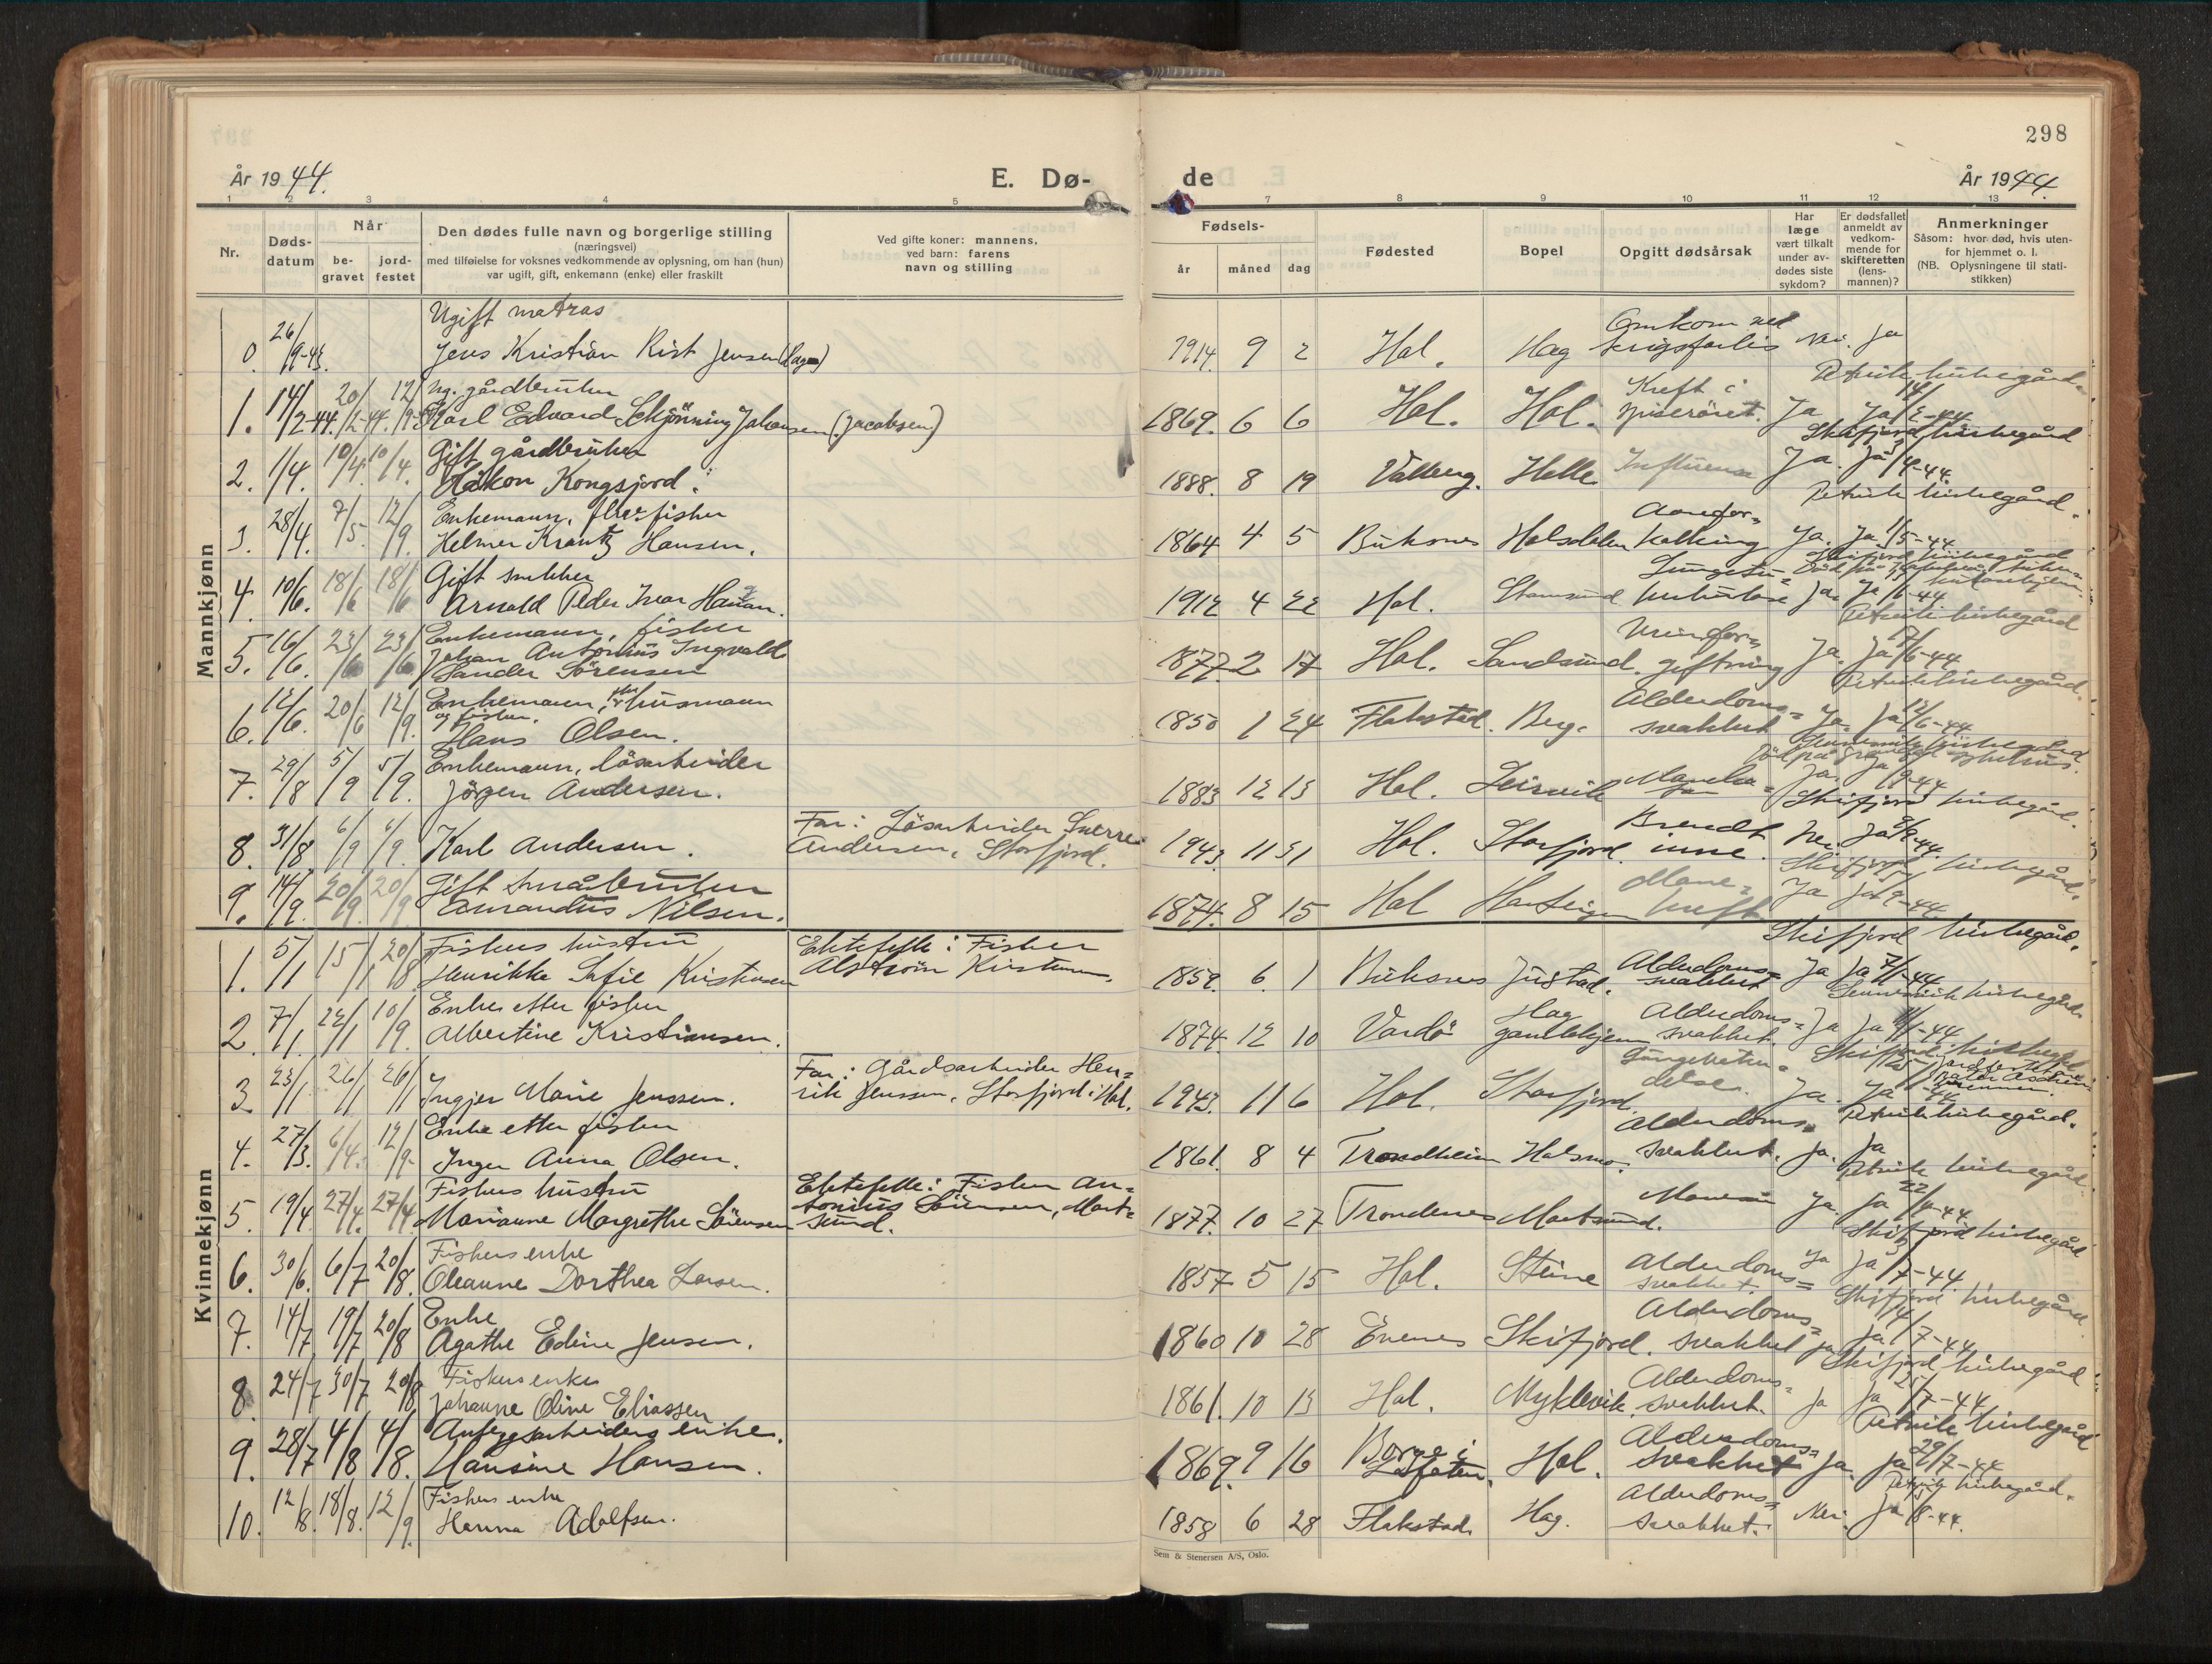 298
År 1944.
E. Dø-
de
År 1944
1 2 3 4 5
7 8 9 10 11 12 13
Nr.
Døds-
datum
Når
be-
gravet
jord-
festet
Den dødes fulle navn og borgerlige stilling
(næringsvei)
med tilføielse for voksnes vedkommende av oplysning, om han (hun)
var ugift, gift, enkemann (enke) eller fraskilt
Ved gifte koner: mannens,
ved barn: farens
navn og stilling
Fødsels-
år
måned
dag
Fødested
Bopel
Opgitt dødsårsak
Har
læge
vært tilkalt
under av-
dødes siste
sykdom?
Er dødsfallet
anmeldt av
vedkom-
mende for
skifteretten
(lens-
mannen)?
Anmerkninger
Såsom: hvor død, hvis uten-
for hjemmet o. l.
(NB. Oplysningene til stati-
stikken)
Mannkjønn
Ugift matros
0. 26/9-43. Jens Kristian Rist Jensen (Hag) 1914. 9 2 Hol. Hag Omkom ved krigsforlis Nei. Ja
1. 14/2-44. 20/2-44. 12/9 Ug. gårdbruker
Karl Edvard Schjönning Johansen (Jacobsen) 1869. 6 6 Hol. Hol. Kreft i spiseröret. Ja Ja 14/2-44
Petvik kirkegård.
2. 1/4. 10/4. 10/4. Gift gårdbruker
Håkon Kongsjord. 1888. 8 19 Valberg. Helle Influensa Ja. Ja /4-44.
Skifjord kirkegård
3. 28/4. 7/5. 12/9. Enkemann, fisker
Helmer Krantz Hansen. 1864 4 5 Buksnes Holsdalen Aarefor=
kalkning Ja. Ja. 1/5-44
Petvik kirkegård.
4. 10/6. 18/6 18/6 Gift snekker
Arnold Peder Ivar Hansen. 1912 4 22 Hol. Stamsund Lungetu=
berkulose Ja. Ja /6-44
Skifjord kirkegård
5. 16/6. 23/6 23/6 Enkemann, fisker
Johan Antonius Ingvald
Sander Sörensen 1877 2 17 Hol. Sandsund. Urinfor=
giftning Ja. Ja 17/6-44.
Petvik kirkegård
6. 12/6. 20/6 12/9. Enkemann, husmann
og fisker.
Hans Olsen. 1850 1 24 Flakstad. Berg. Alderdoms=
svakhet Ja. Ja 12/6-44
Petvik kirkegård.
7. 29/8 5/9 5/9. Enkemann, lösarbeider
Jörgen Andersen. 1883 12 13 Hol. Leirvik Ja. Ja /9-44
8. 31/8 6/9 6/9. Karl Andersen. Far: Lösarbeider Sverre
Andersen, Storfjord. 1943 11 31 Hol. Storfjord. Brendt
inne. Nei. Ja /9-44.
Skifjord kirkegård.
9. 14/9. 20/9. 20/9 Gift småbruker
Amandus Nilsen. 1874. 8 15 Hol Mave=
kreft Ja Ja /9-44.
Skifjord kirkegård.
Kvinnekjønn
1. 5/1 15/1 20/8 Fiskers hustru
Henrikke Sofie Kristensen Ektefelle: Fisker
Alstrøm Kristensen. 1859. 6. 1 Buksnes Justad. Alderdoms=
svakhet Ja Ja 7/1-44
Skifjord kirkegård.
2. 7/1. 22/1 10/9. Enke etter fisker
Albertine Kristiansen. 1874. 12 10 Vardö Hag
gamlehjem Alderdoms=
svakhet. Ja Ja /1-44
Sennesvik kirkegård.
3. 23/1 26/1 26/1 Ingjer Marie Jenssen. Far: Gårdsarbeider Hen=
rik Jenssen, Storfjord i Hol. 1943. 11 6 Hol. Storfjord. Lungebeten=
delse. Ja. Ja 25/1-44
Skifjord kirkegård
4. 27/3. 6/4. 12/9. Enke etter fisker
Inger Anna Olsen. 1861. 8 4 Trondheim Holsmo. Alderdoms=
svakhet. Ja. Ja
Petvik kirkegård.
5. 19/4. 27/4. 27/4. Fiskers hustru
Marianne Margrethe Sörensen Ektefelle: Fisker An=
tonius Sörensen, Mort=
sund. 1877. 10 27 Trondenes Mortsund. Ja. Ja 22/4-44.
Petvik kirkegård.
6. 30/6. 6/7 20/8. Fiskers enke
Oleanne Dorthea Larsen. 1857 5 15 Hol. Steine Alderdoms=
svakhet. Ja Ja /7-44.
Skifjord kirkegård
7. 14/7. 19/7 20/8 Enke
Agathe Edine Jensen. 1860 10 28 Evenes Skifjord. Alderdoms=
svakhet Ja Ja 14/7-44
Skifjord kirkegård.
8. 24/7 30/7 20/8. Fiskers enke
Johanne Oline Eliassen 1861. 10 13 Hol. Myklevik. Alderdoms=
svakhet. Ja Ja 25/7-44
Skifjord kirkegård
9. 28/7 4/8 4/8. Anleggsarbeiders enke.
Hansine Hansen. 1869. 9 16 Borge i
Lofoten. Hol. Alderdoms=
svakhet Ja. Ja 29/7-44
Petvik kirkegård
10. 12/8. 18/8. 12/9. Fiskers enke
Hanna Adolfsen. 1858 6 28 Flakstad. Hag. Alderdoms=
svakhet. Nei. Ja /8-44.
Petvik kirkegård.
Sem & Stenersen A/S, Oslo.